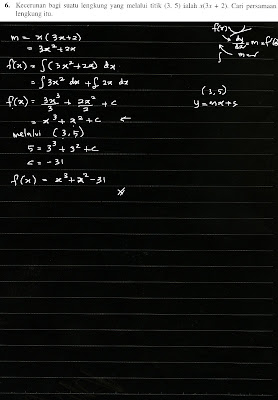 6. Kecerunan bagi suatu lengkung yang melalui titik (3, 5) ialah x(3x + 2). Cari persamaan
lengkung itu.
m = x(3x+2)
= 3x² + 2x
f(x) = ∫(3x²+2x) dx
= ∫3x² dx + ∫2x dx
f(x) = 3x³/3 + 2x²/2 + c
= x³ + x² + c ←
melalui (3,5)
5 = 3³ + 3² + c
c = -31
f(x) = x³ + x² - 31
f(x)
dy/dx = m = f'(x)
∫ m
(3,5)
y = mx + c